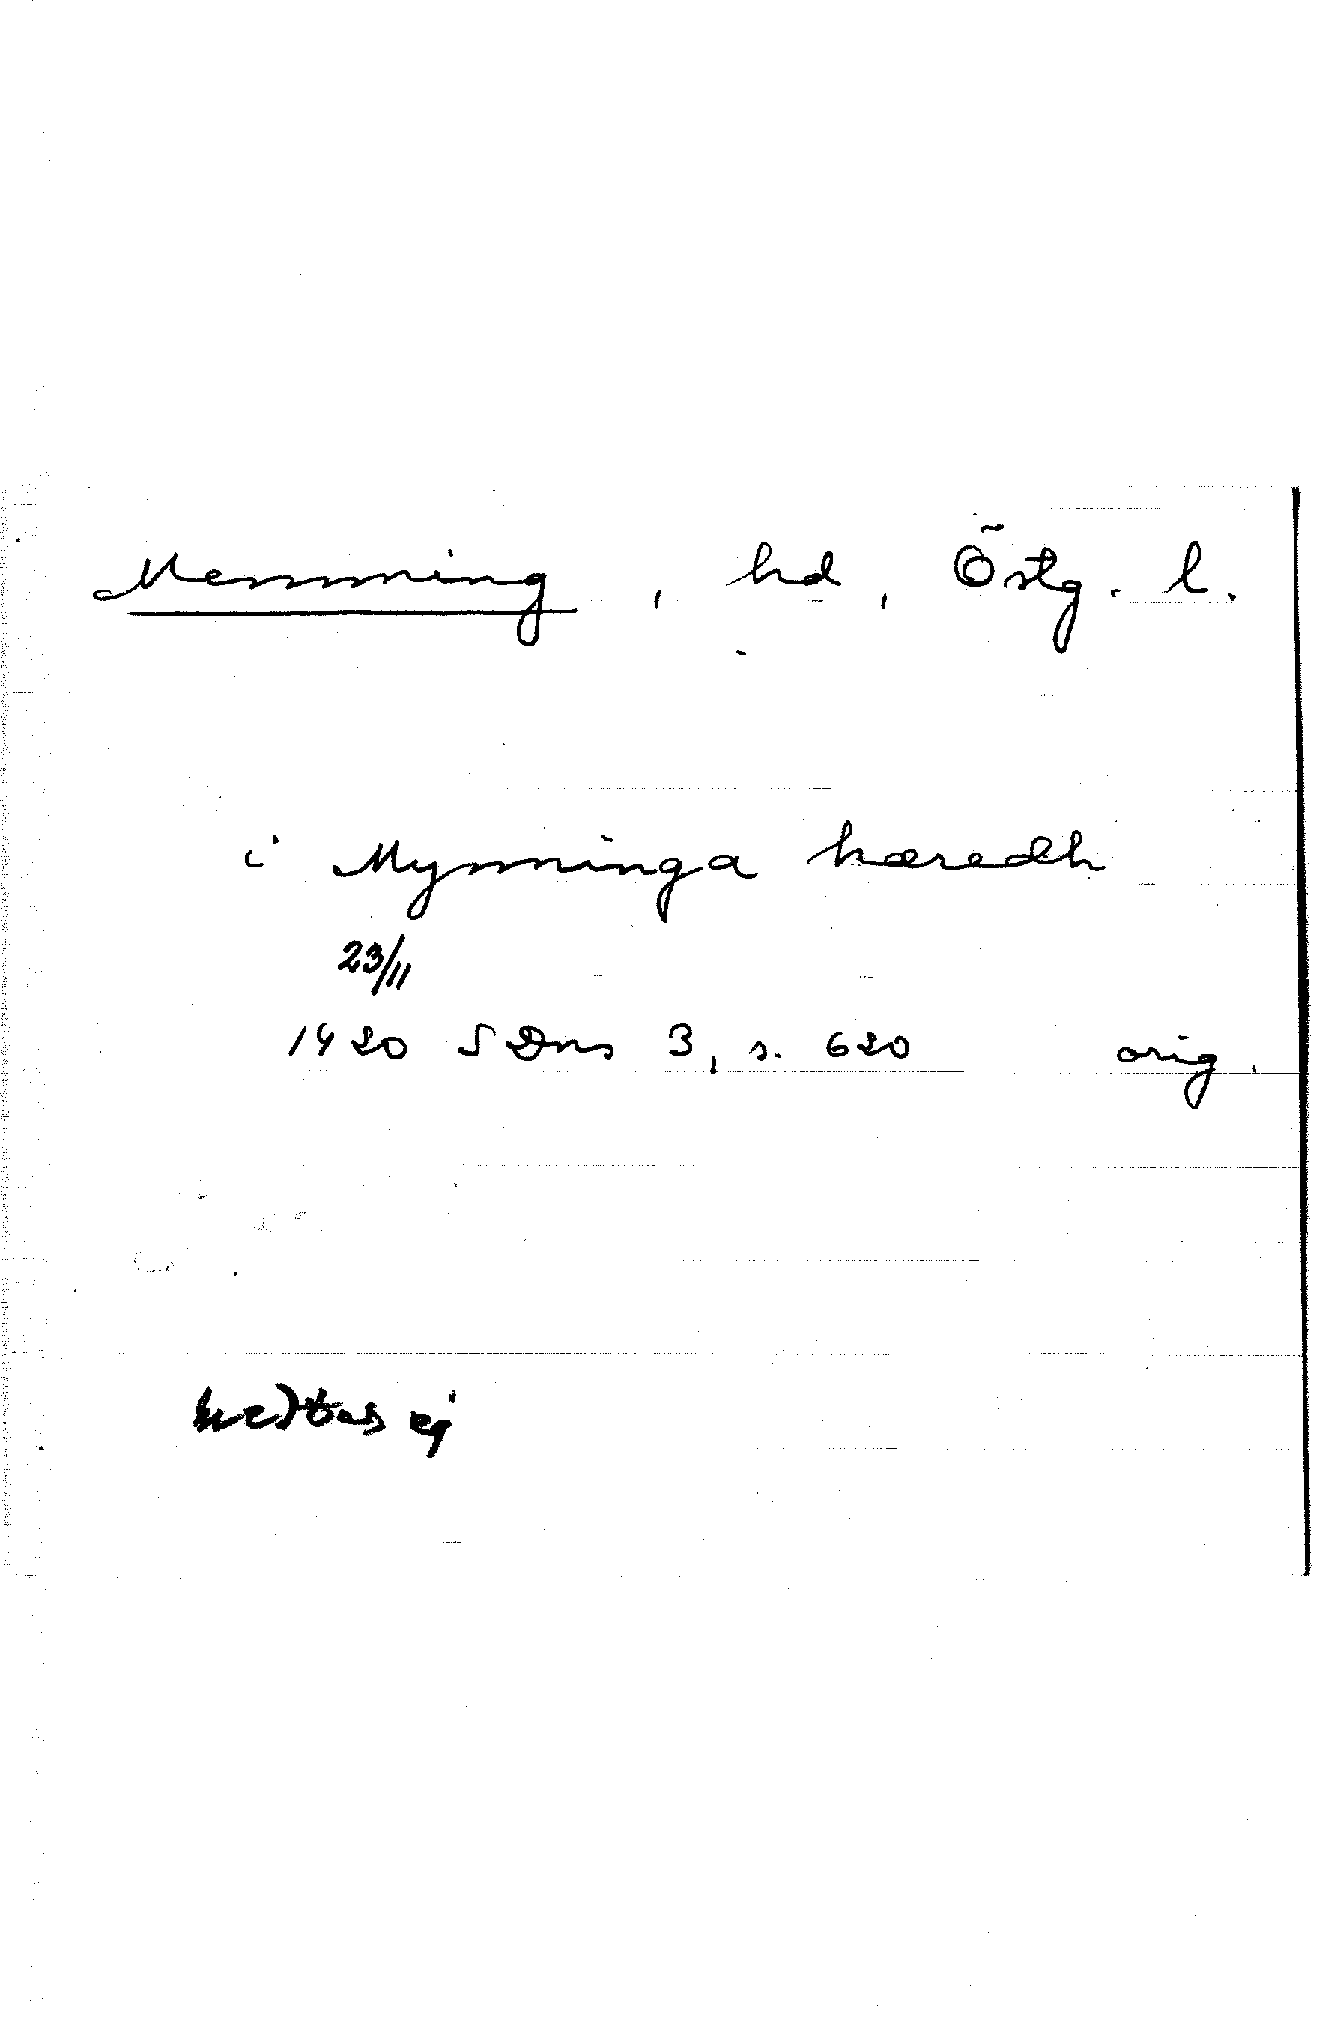 Memming, hd, Östg. l.
i Mynninga hæredh
23/11
1420 SDns 3, s. 620 orig.
medtas ej